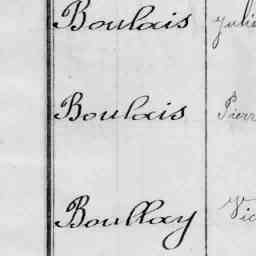 Boulais Julie
Boulais Pierr
Boullay Vic